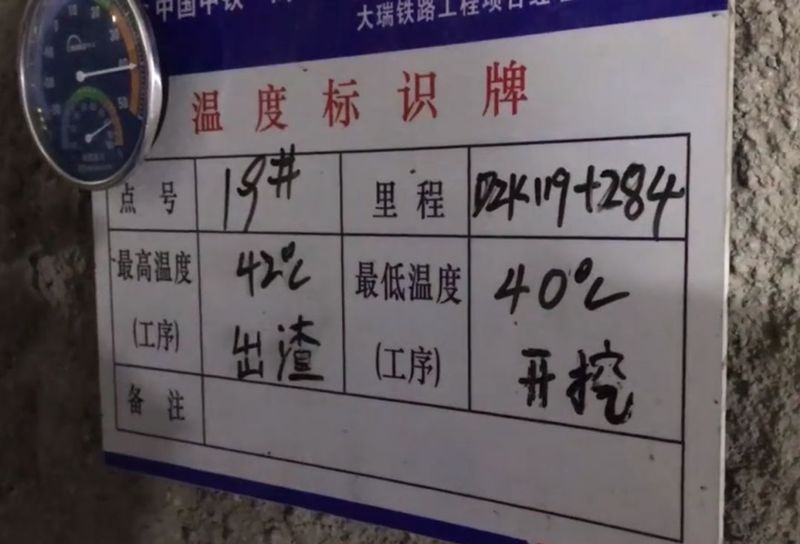 中国中铁
大瑞铁路工程项目经理
温度标识牌
点号 19# 里程 DZK119+284
最高温度 42℃ 最低温度 40℃
(工序) 出渣 (工序) 开挖
备注